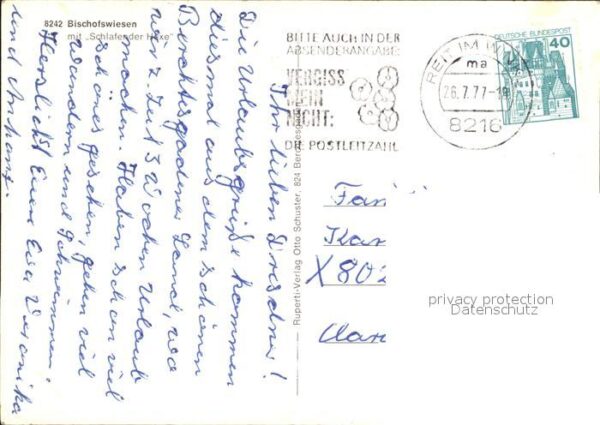 8242 Bischofswiesen
mit "Schlafender Hexe"
Ihr lieben Dresdner!
Die Urlaubsgrüße kommen
diesmal aus dem schönen
Berchtesgadener Land, wo
wir z. Zeit 3 Wochen Urlaub
machen. Haben schon viel
schönes gesehen, gehen viel
wandern und schwimmen.
Herzlichst Eure Eva Veronika
und Anhang.
Ruperti-Verlag Otto Schuster, 824 Berchtesgaden
BITTE AUCH IN DER
ABSENDERANGABE:
VERGISS
MEIN
NICHT:
DIE POSTLEITZAHL
REIT IM WINKL
ma
26.7.77-18
8216
DEUTSCHE BUNDESPOST
40
Fam
Kar
X 802
privacy protection
Datenschutz